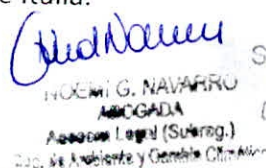 e Italia.
NOEMI G. NAVARRO
ABOGADA
Asesora Legal (Subrog.)
de Ambiente y Cambio Climático